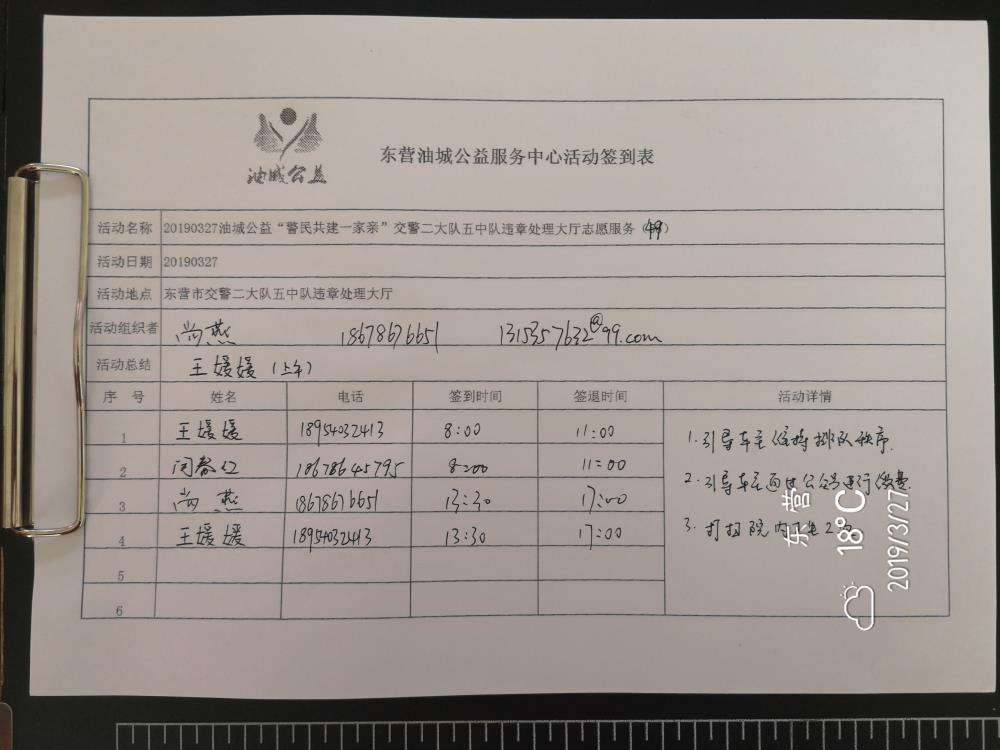 油城公益
东营油城公益服务中心活动签到表
活动名称 20190327油城公益“警民共建一家亲”交警二大队五中队违章处理大厅志愿服务（49）
活动日期 20190327
活动地点 东营市交警二大队五中队违章处理大厅
活动组织者 尚燕 18678676651 1315357632@99.com
活动总结 王媛媛（上午）
序 号 姓名 电话 签到时间 签退时间 活动详情
1 王媛媛 18954032413 8:00 11:00
2 闫春 18678645795 8:00 11:00
3 尚燕 18678676651 13:30 17:00
4 王媛媛 18954032413 13:30 17:00
5
6
1.引导车主维持排队秩序.
2.引导车主 公众号进行缴费.
3.打扫院内卫生
东营
18°C
2019/3/27